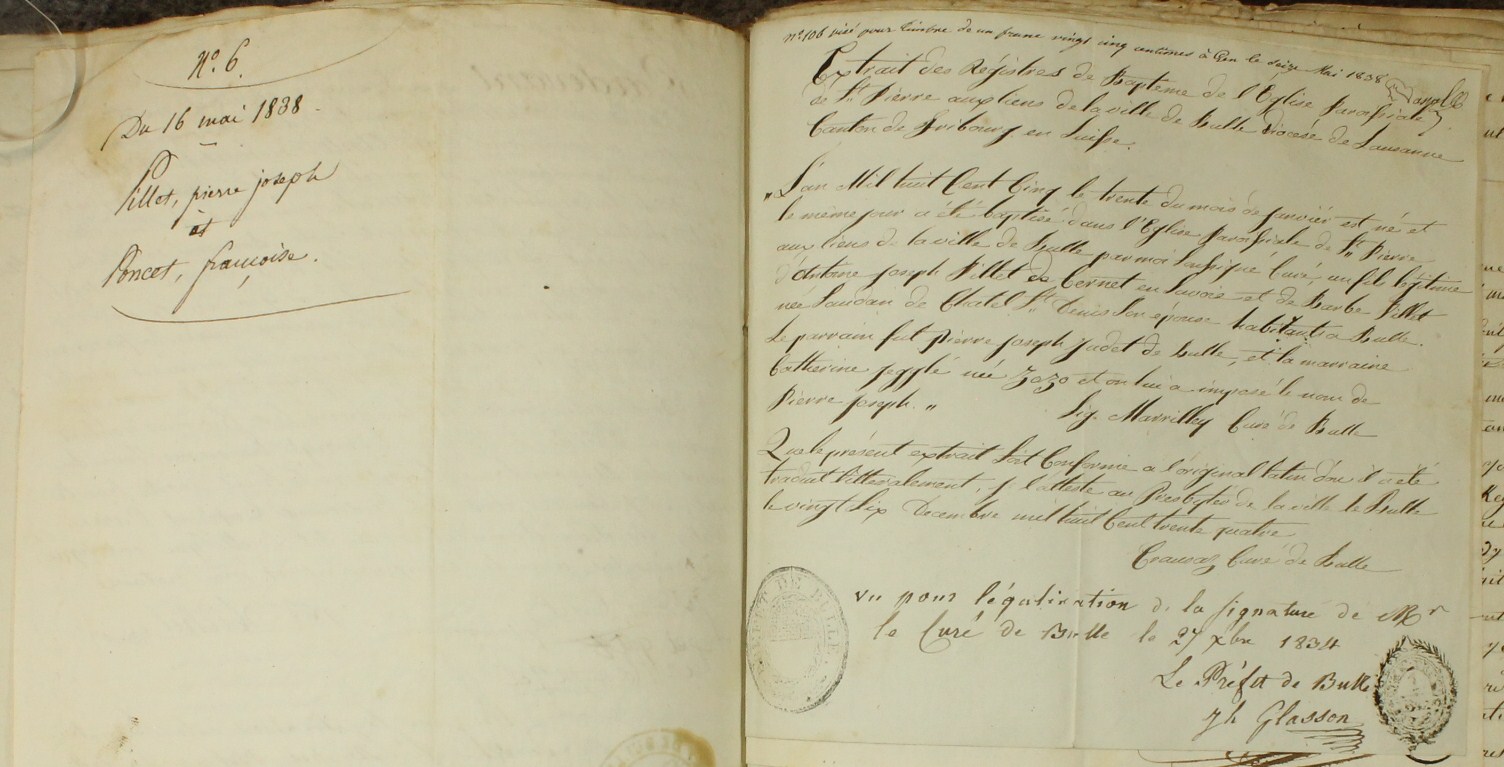 N.º 6.
Du 16 mai 1838.
Pillet, pierre joseph
et
Poncet, françoise.
Nº 106 visé pour timbre de un franc vingt cinq centimes à Gex le seize Mai 1838
Extrait des Régistres de Baptême de l'Eglise paroissiale
de St Pierre aux liens de la ville de Bulle Diocèse de Lausanne
Canton de Fribourg en Suisse.
„ L'an Mil huit Cent Cinq le trente du mois de janvier est né et
le même jour a été baptisé dans l'Eglise paroissiale de St Pierre
aux liens de la ville de Bulle par moi soussigné Curé, un fils légitime
d'Antoine Joseph Pillet de Cernet en Savoie et de Barbe Pillet
née Saudan de Chatel St Denis son épouse habitants à Bulle.
Le parrain fut Pierre Joseph Judet de Bulle, et la marraine
Catherine née Zozo et on lui a imposé le nom de
Pierre Joseph. „ Sig. Marrilley Curé de Bulle
Que le présent extrait soit Conforme à l'original latin d'ou il a été
traduit littéralement, je l'atteste au Presbytère de la ville de Bulle
le vingt six Decembre mil huit Cent trente quatre
Crausaz Curé de Bulle
vu pour légalisation de la signature de Mr
le Curé de Bulle le 27 xbre 1834
Le Préfet de Bulle
Jh Glasson
DE BULLE